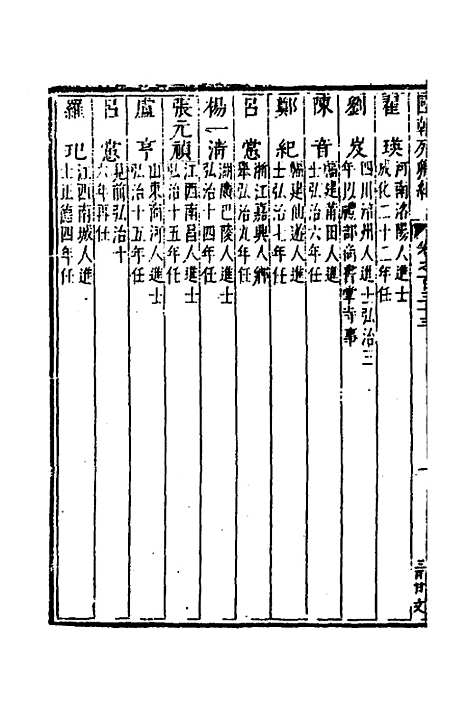 國朝列卿紀 卷之一百三十三
翟瑛 河南洛陽人進士
成化二十二年任
劉岌 四川涪州人進士弘治三
年以禮部尚書掌寺事
陳音 福建莆田人進
士弘治六年任
鄭紀 福建仙遊人進
士弘治七年任
呂㦂 浙江嘉興人鄉
舉弘治九年任
楊一清 湖廣巴陵人進士
弘治十四年任
張元禎 江西南昌人進士
弘治十五年任
盧亨 山東海河人進士
弘治十五年任
呂㦂 見前弘治十
六年再任
羅玘 江西南城人進
士正德四年任
一